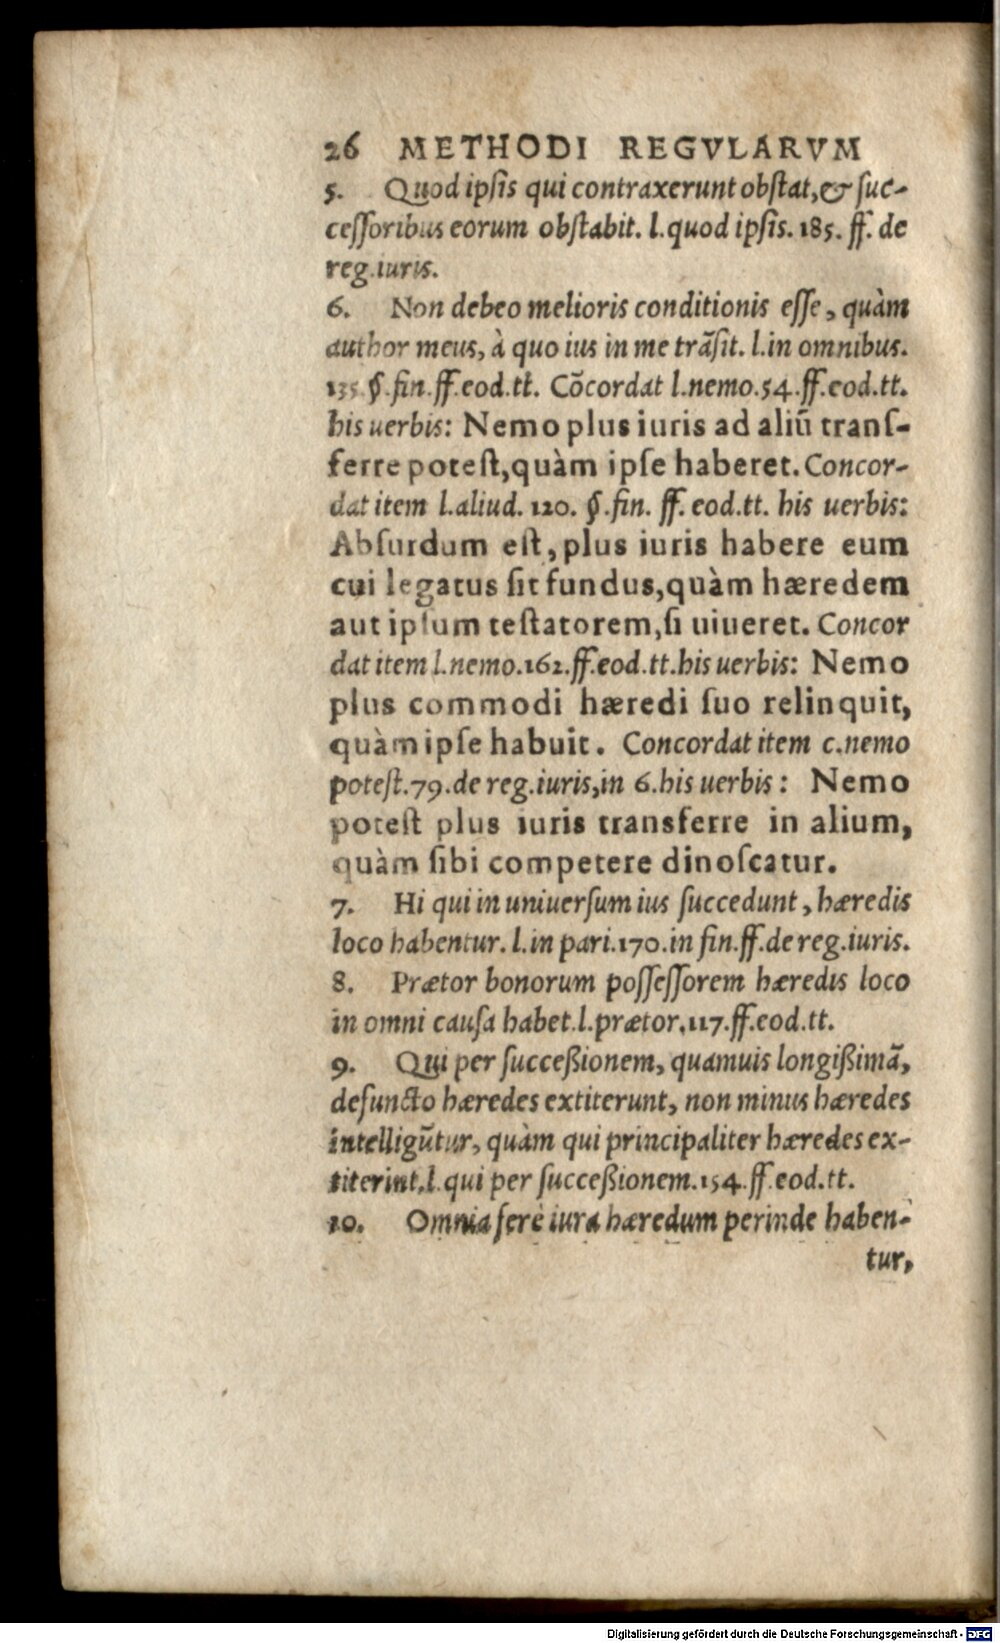 26 METHODI REGVLARVM
5. Quod ipſis qui contraxerunt obſtat, & ſuc-
ceſſoribus eorum obſtabit. l. quod ipſis. 185. ff. de
reg. iuris.
6. Non debeo melioris conditionis eſſe, quàm
author meus, à quo ius in me trãſit. l. in omnibus.
135. §. fin. ff. eod. tt. Cõcordat l. nemo. 54. ff. eod. tt.
his uerbis: Nemo plus iuris ad aliũ tranſ-
ferre poteſt, quàm ipſe haberet. Concor-
dat item l. aliud. 120. §. fin. ff. eod. tt. his uerbis:
Abſurdum eſt, plus iuris habere eum
cui legatus ſit fundus, quàm hæredem
aut ipſum teſtatorem, ſi uiueret. Concor
dat item l. nemo. 162. ff. eod. tt. his uerbis: Nemo
plus commodi hæredi ſuo relinquit,
quàm ipſe habuit. Concordat item c. nemo
poteſt. 79. de reg. iuris, in 6. his uerbis: Nemo
poteſt plus iuris transferre in alium,
quàm ſibi competere dinoſcatur.
7. Hi qui in uniuerſum ius ſuccedunt, hæredis
loco habentur. l. in pari. 170. in fin. ff. de reg. iuris.
8. Prætor bonorum poſſeſſorem hæredis loco
in omni cauſa habet. l. prætor. 117. ff. eod. tt.
9. Qui per ſucceßionem, quamuis longißimã,
defuncto hæredes extiterunt, non minus hæredes
intelligũtur, quàm qui principaliter hæredes ex-
titerint. l. qui per ſucceßionem. 154. ff. eod. tt.
10. Omnia ferè iura hæredum perinde haben-
tur,
Digitalisierung gefördert durch die Deutsche Forschungsgemeinschaft - DFG